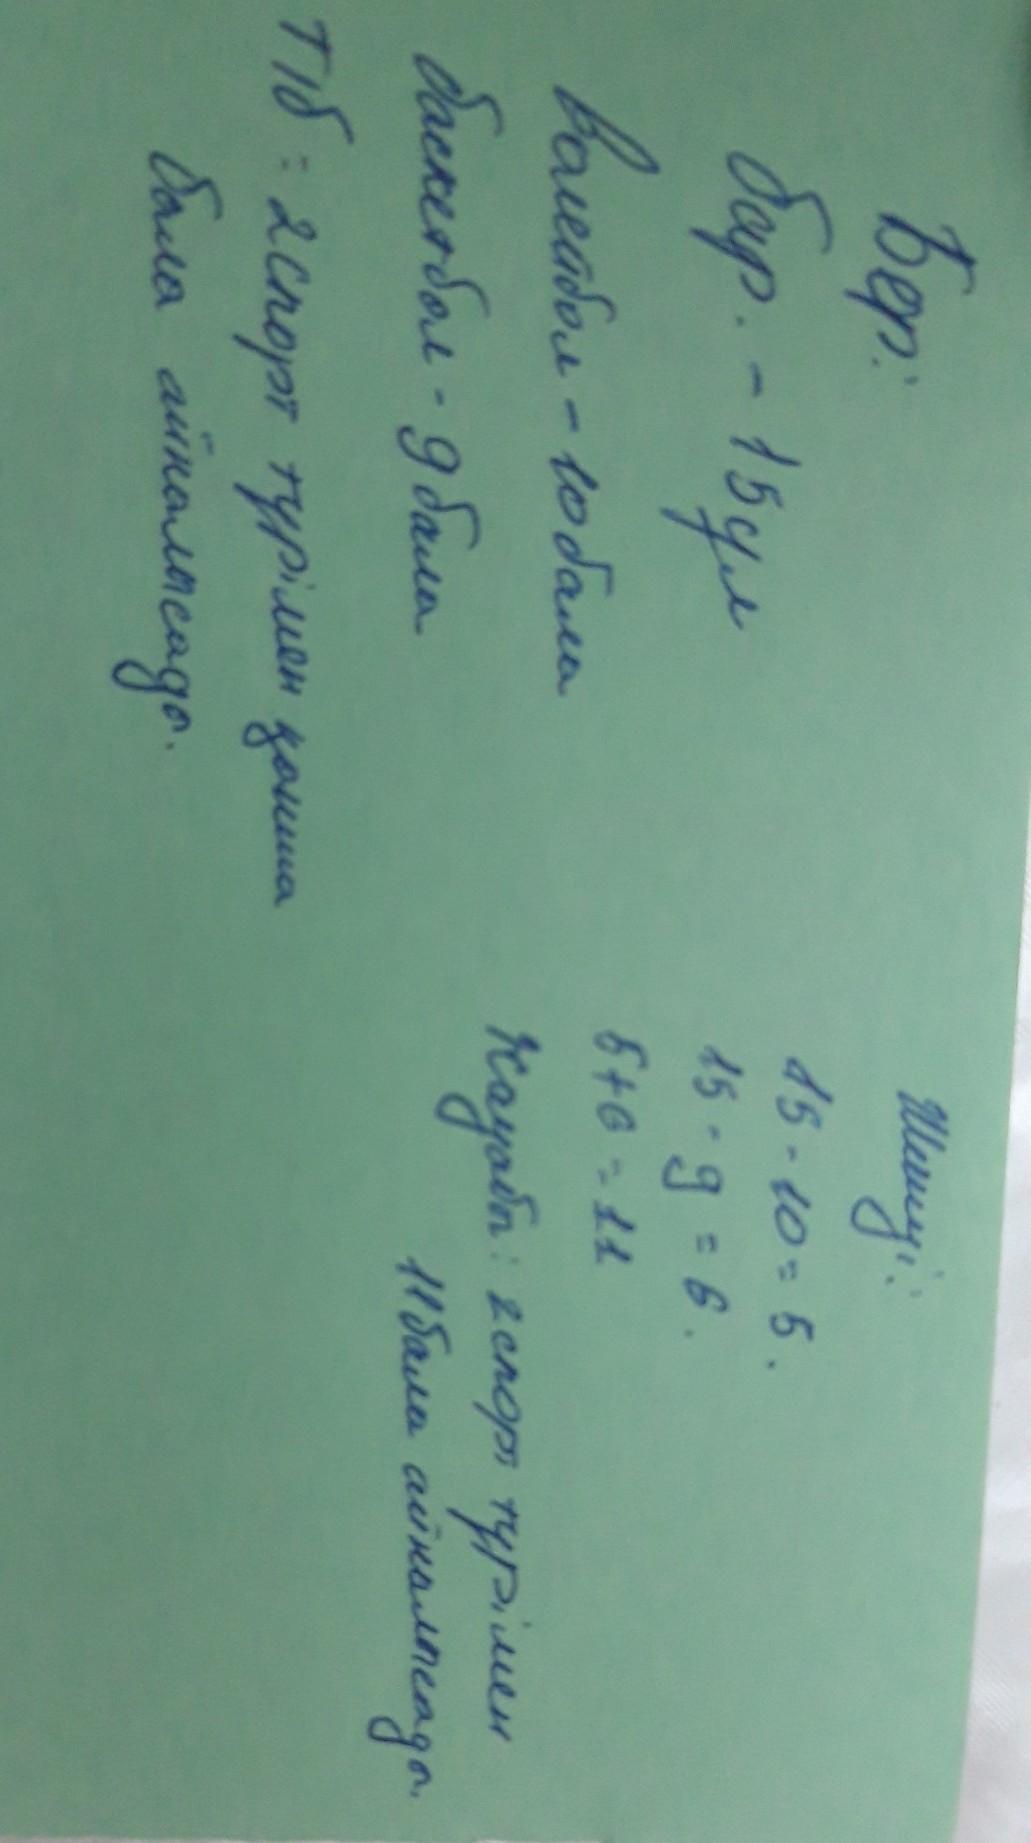 Бер:
бар. - 15 ұл
Волейбол - 10 бала
баскетбол - 9 бала
Т/б: 2 спорт түрімен қанша
бала айналысады.
Шешуі:
15 - 10 = 5.
15 - 9 = 6.
5 + 6 = 11
Жауабы: 2 спорт түрімен
11 бала айналысады.